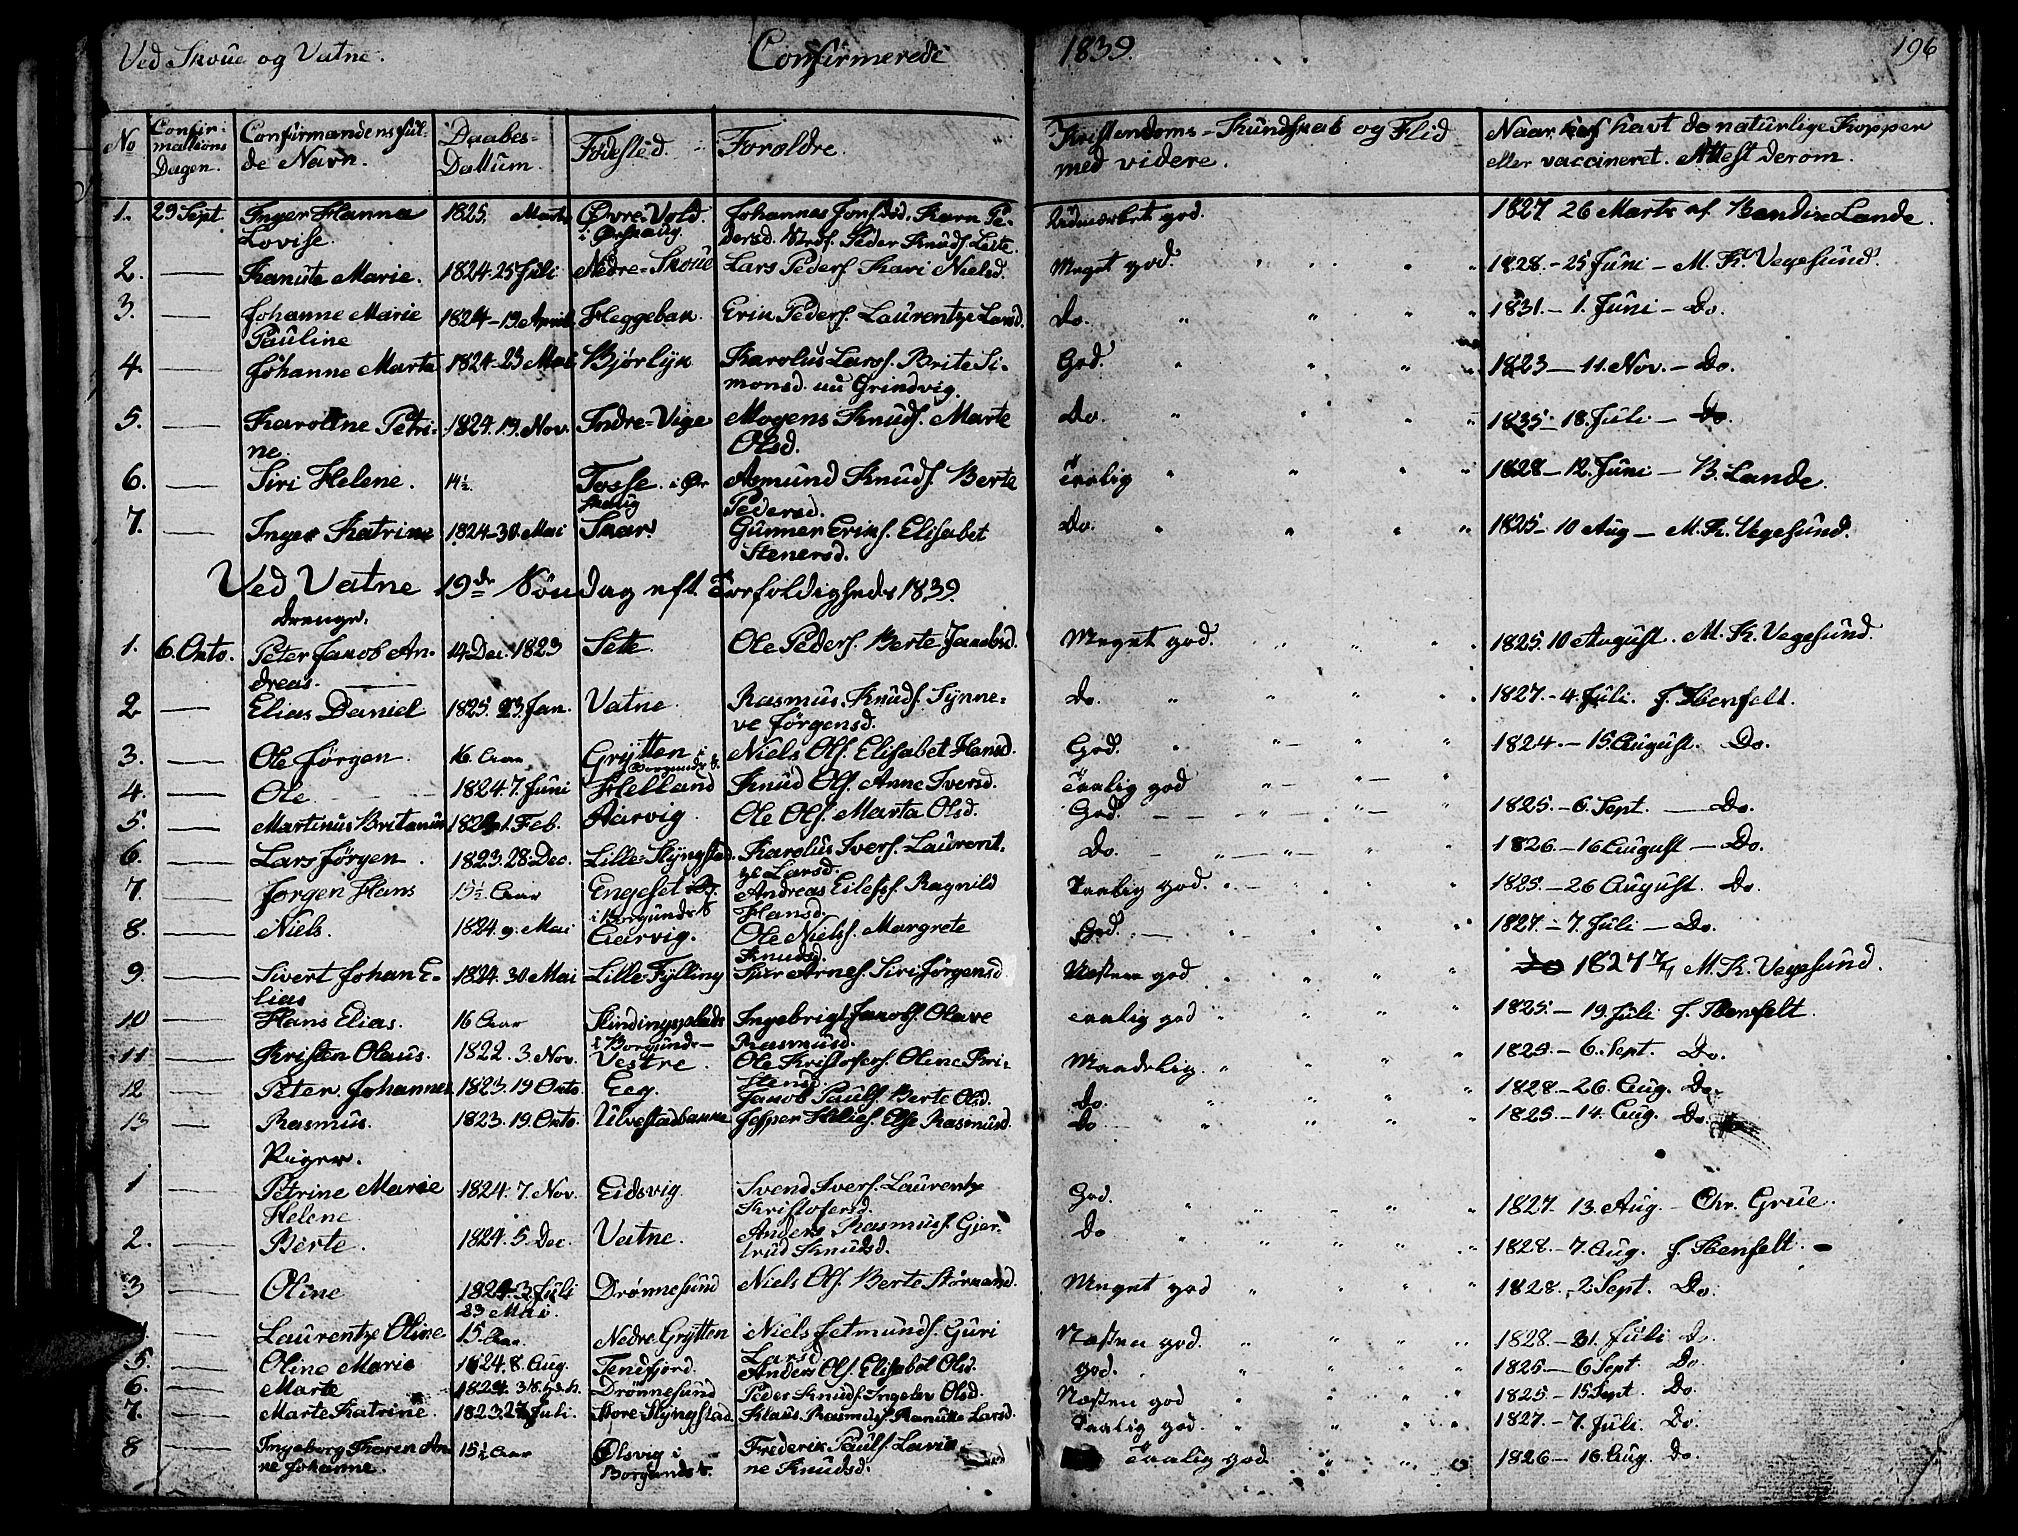 Ved Skoue og Vatne. Confirmerede 1839. 196
No Confirmations Dagen. Confirmandens fulde Navn. Daabes-Dattum. Fødested. Forældre. Kristendoms-Kundskab og Flid med videre. Naar haf havt de naturlige Kopper eller vaccineret. Attest derom.
1. 29 Sept. Inger Hanna 1825. Marts Øvre-Vold. Johannes Jonss. Karn Pe- Udmærket god. 1827 26 Marts af Bendix Lande.
Lovise i Ørskoug. dersd.
2. — Kanute Marie. 1824-25 Juli Nedre-Skoue Lars Peders. Kari Nielsd. Meget god. 1828.-25 Juni - M. K. Vegesund.
3. — Johanne Marie 1824-19 April Heggebak. Erik Peders. Laurentze Larsd. Do. 1831.-1. Juni - Do.
Pauline
4. — Johanne Marta 1824-23 Mai Bjørlyk Karolus Larss. Brite Si- God. 1823-11. Nov.- Do.
monsd. nu Grindvig.
5. — Karoline Petri- 1824.19. Nov. Indre-Vige Mogens Knuds. Marte Do. 1835-18. Juli - Do
ne. Olsd.
6. — Siri Helene. 14½ Tosse. i Ør Asmund Knuds. Berte Taalig 1828-12. Juni - B. Lande.
skoug Pedersd.
7. — Inger Katrine 1824-30. Mai Skar Gunner Eriks. Elisabet Do. 1825-10 Aug - M. K. Vegesund.
Stenersd.
Ved Vatne 19de Søndag eft. Trefoldigheds 1839.
Drenge.
1. 6. Octo. Peter Jacob An- 14 Dec. 1823 Sette. Ole Peders. Berte Jacobsd. Meget god. 1825. 10 August. M. K. Vegesund.
dreas.
2 — Elias Daniel 1825. 23. Jan. Vatne. Rasmus Knuds. Synne- Do. 1827.-4. Juli. J. Ibenfelt.
ve Jørgensd.
3. — Ole Jørgen. 16. Aar Grytten i Niels Ols. Elisabet Hansd. God. 1824.-15. August. Do.
Borgunds
4. — Ole 1824. 7. Juni Helland Knud Ols. Anne Iversd. Taalig god
5. — Martinus Britanus 1824 1. Feb. Aarvig. Ole Ols. Marta Olsd. God. 1825.-6. Sept. - Do.
6. — Lars Jørgen. 1823. 28. Dec. Lille-Slyngstad. Karolus Ivers. Laurent- Do. 1826-16 August - Do.
ze Larsd.
7 — Jørgen Hans 15½ Aar Engeset Andreas Eilefss. Ragnild Taalig god. 1825.-26 August. Do.
i Borgunds Hansd.
8. — Niels. 1824. 9. Mai Aarvig. Ole Nielss. Margrete God. 1827.-7. Juli - Do.
Knudsd.
9. — Sivert Johan E- 1824. 30. Mai Lille-Fylling Siur Arnes. Siri Jørgensd. Næsten god 1827 M. K. Vegesund.
lias
10 — Hans Elias. 16 Aar Ingebrigt Jacobs. Olave Taalig god 1825.-19. Juli J. Ibenfelt.
i Borgunds- Rasmusd.
11 — Kristen Olaus. 1822. 3. Nov. Vestre. Ole Kristofers. Oline Kri- Maadelig. 1825.-6. Sept. Do.
stensd.
12 — Peter Johannes 1823. 19 Octo Eeg. Jacob Pauls. Berte Olsd. Do. 1828-26. Aug. Do.
13 — Rasmus. 1823. 19. Octo. Ulvestadbakke Jesper Else Rasmusd. Do 1825-14. Aug. Do.
Piger.
1 — Petrine Marie 1824. 7. Nov. Eidsvig. Svend Ivers. Laurentze God. 1827. 13. Aug.- Chr. Grue.
Helene Kristofersd.
2. — Berte. 1824. 5. Dec. Vatne. Anders Rasmuss. Gjer- Do 1828.-7. Aug. J. Ibenfelt.
trud Knudsd.
3 — Oline 1824. 3 Juli Drønnesund Niels Ols. Berte Meget god 1828.-2. Sept. Do.
23 Mai.
— Laurentze Oline 15 Aar Nedre-Grytten Niels Guri Næsten god. 1828-31. Juli Do.
Larsd
5. — Oline Marie 1824. 8. Aug. Tendfjord. Anders Ols. Elisabet Olsd. god. 1825-6 Sept. Do.
6. — Marte 1824. Drønnesund Peder Knuds. Ingebor Olsd. Næsten god 1825-15 Sept. Do.
7. — Marte Katrine. 1823. 27 Juli. Store-Slyngstad. Klaus Rasmuss. Kanutte Larsd. Taalig god. 1827.-7. Juli. Do.
8 — Ingeborg Karen An- 15½ Aar Ølsvig i Frederik Pauls. Lavi- Taalig god 1826-16. Aug. Do.
ne Johanne. Borgunds ne Knudsd.